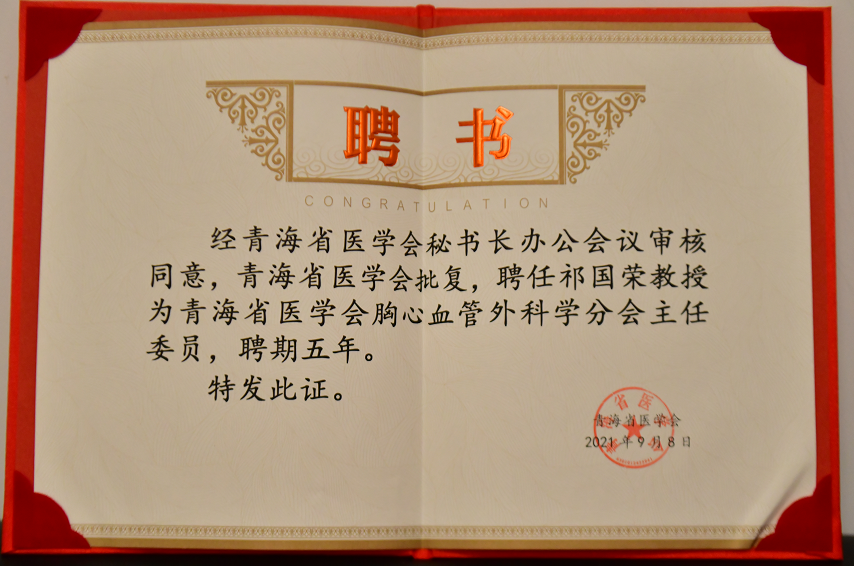 聘书
CONGRATULATION
经青海省医学会秘书长办公会议审核
同意，青海省医学会批复，聘任祁国荣教授
为青海省医学会胸心血管外科学分会主任
委员，聘期五年。
特发此证。
青海省医学会
2021年9月8日